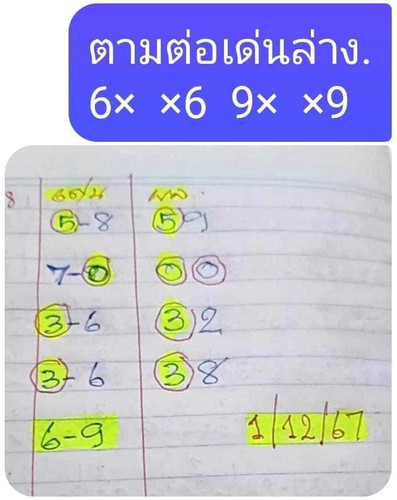 ตามต่อเด่นล่าง.
6× ×6 9× ×9
8 เด่น ผล.
5-8 59
7-0 00
3-6 32
3-6 38
6-9 1/12/67